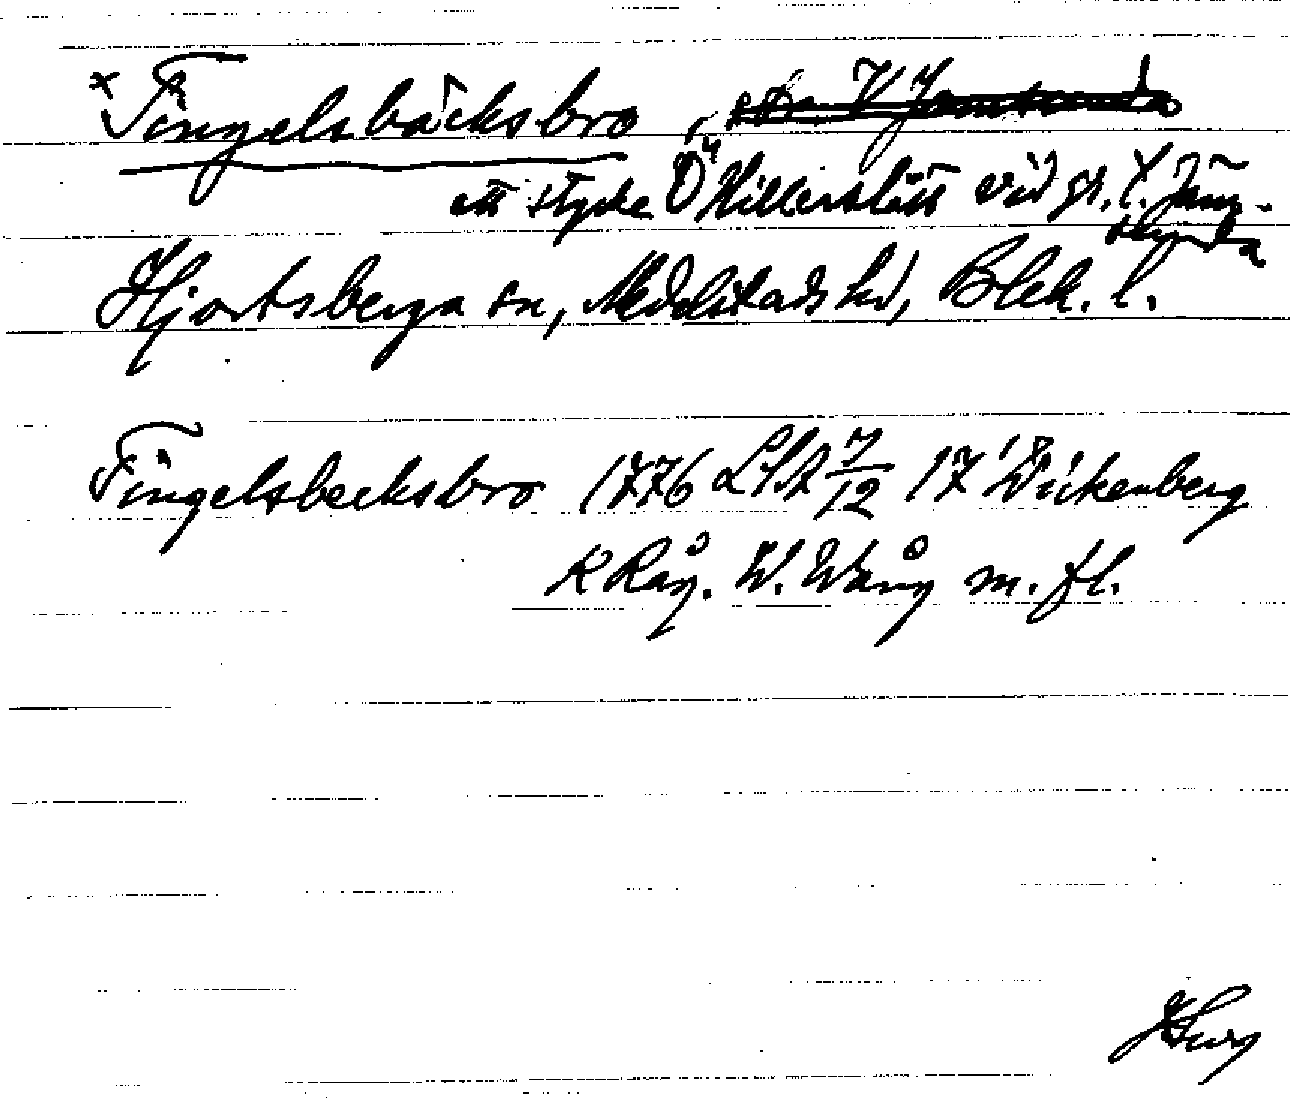 × Tingelsbäcksbro,
ett stycke Ö Hillerslätt vid gr. t. Jäm-
shunda
Hjortsberga sn, Medelstads hd, Blek. l.
Tingelsbecksbro 1776 LSA 7/12 17 Wickenberg
K Råg. W. Wång m. fl.